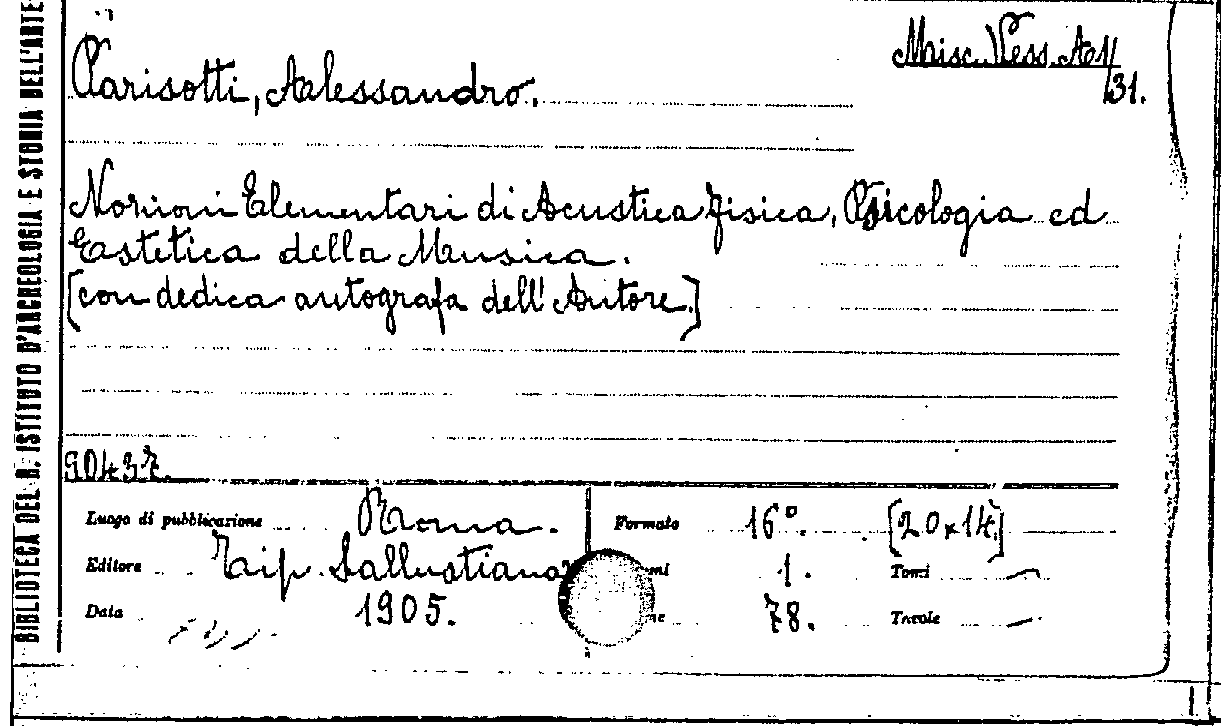 BIBLIOTECA DEL R. ISTITUTO D'ARCHEOLOGIA E STORIA DELL'ARTE
Parisotti, Alessandro.
Misc. Vess. A 11/31.
Nozioni Elementari di Acustica fisica, Psicologia ed
Estetica della Musica.
[con dedica autografa dell'Autore]
90437.
Luogo di pubblicazione Roma. Formato 16°. [20x14]
Editore Tip. Sallustiana 1. Tomi —
Data 1905. 78. Tavole —